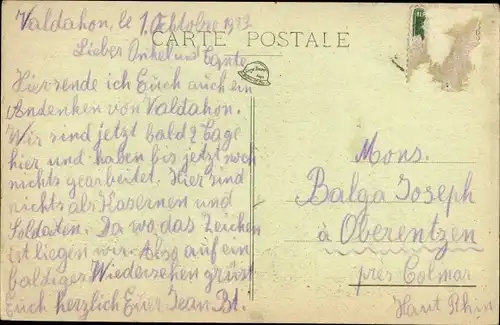 Valdahon, le 1. Oktober
Lieber Onkel und Tante
CARTE POSTALE
Hier sende ich Euch auch ein
Andenken von Valdahon.
Wir sind jetzt bald 2 Tage
hier und haben bis jetzt noch
nichts gearbeitet. Hier sind
nichts als Kasernen und
Soldaten. Da wo das Zeichen
ist liegen wir. Also auf ein
baldiges Wiedersehen grüsst
Euch herzlich Euer Jean-Bt.
Mons.
Balga Joseph
à Oberentzen
près Colmar
Haut Rhin